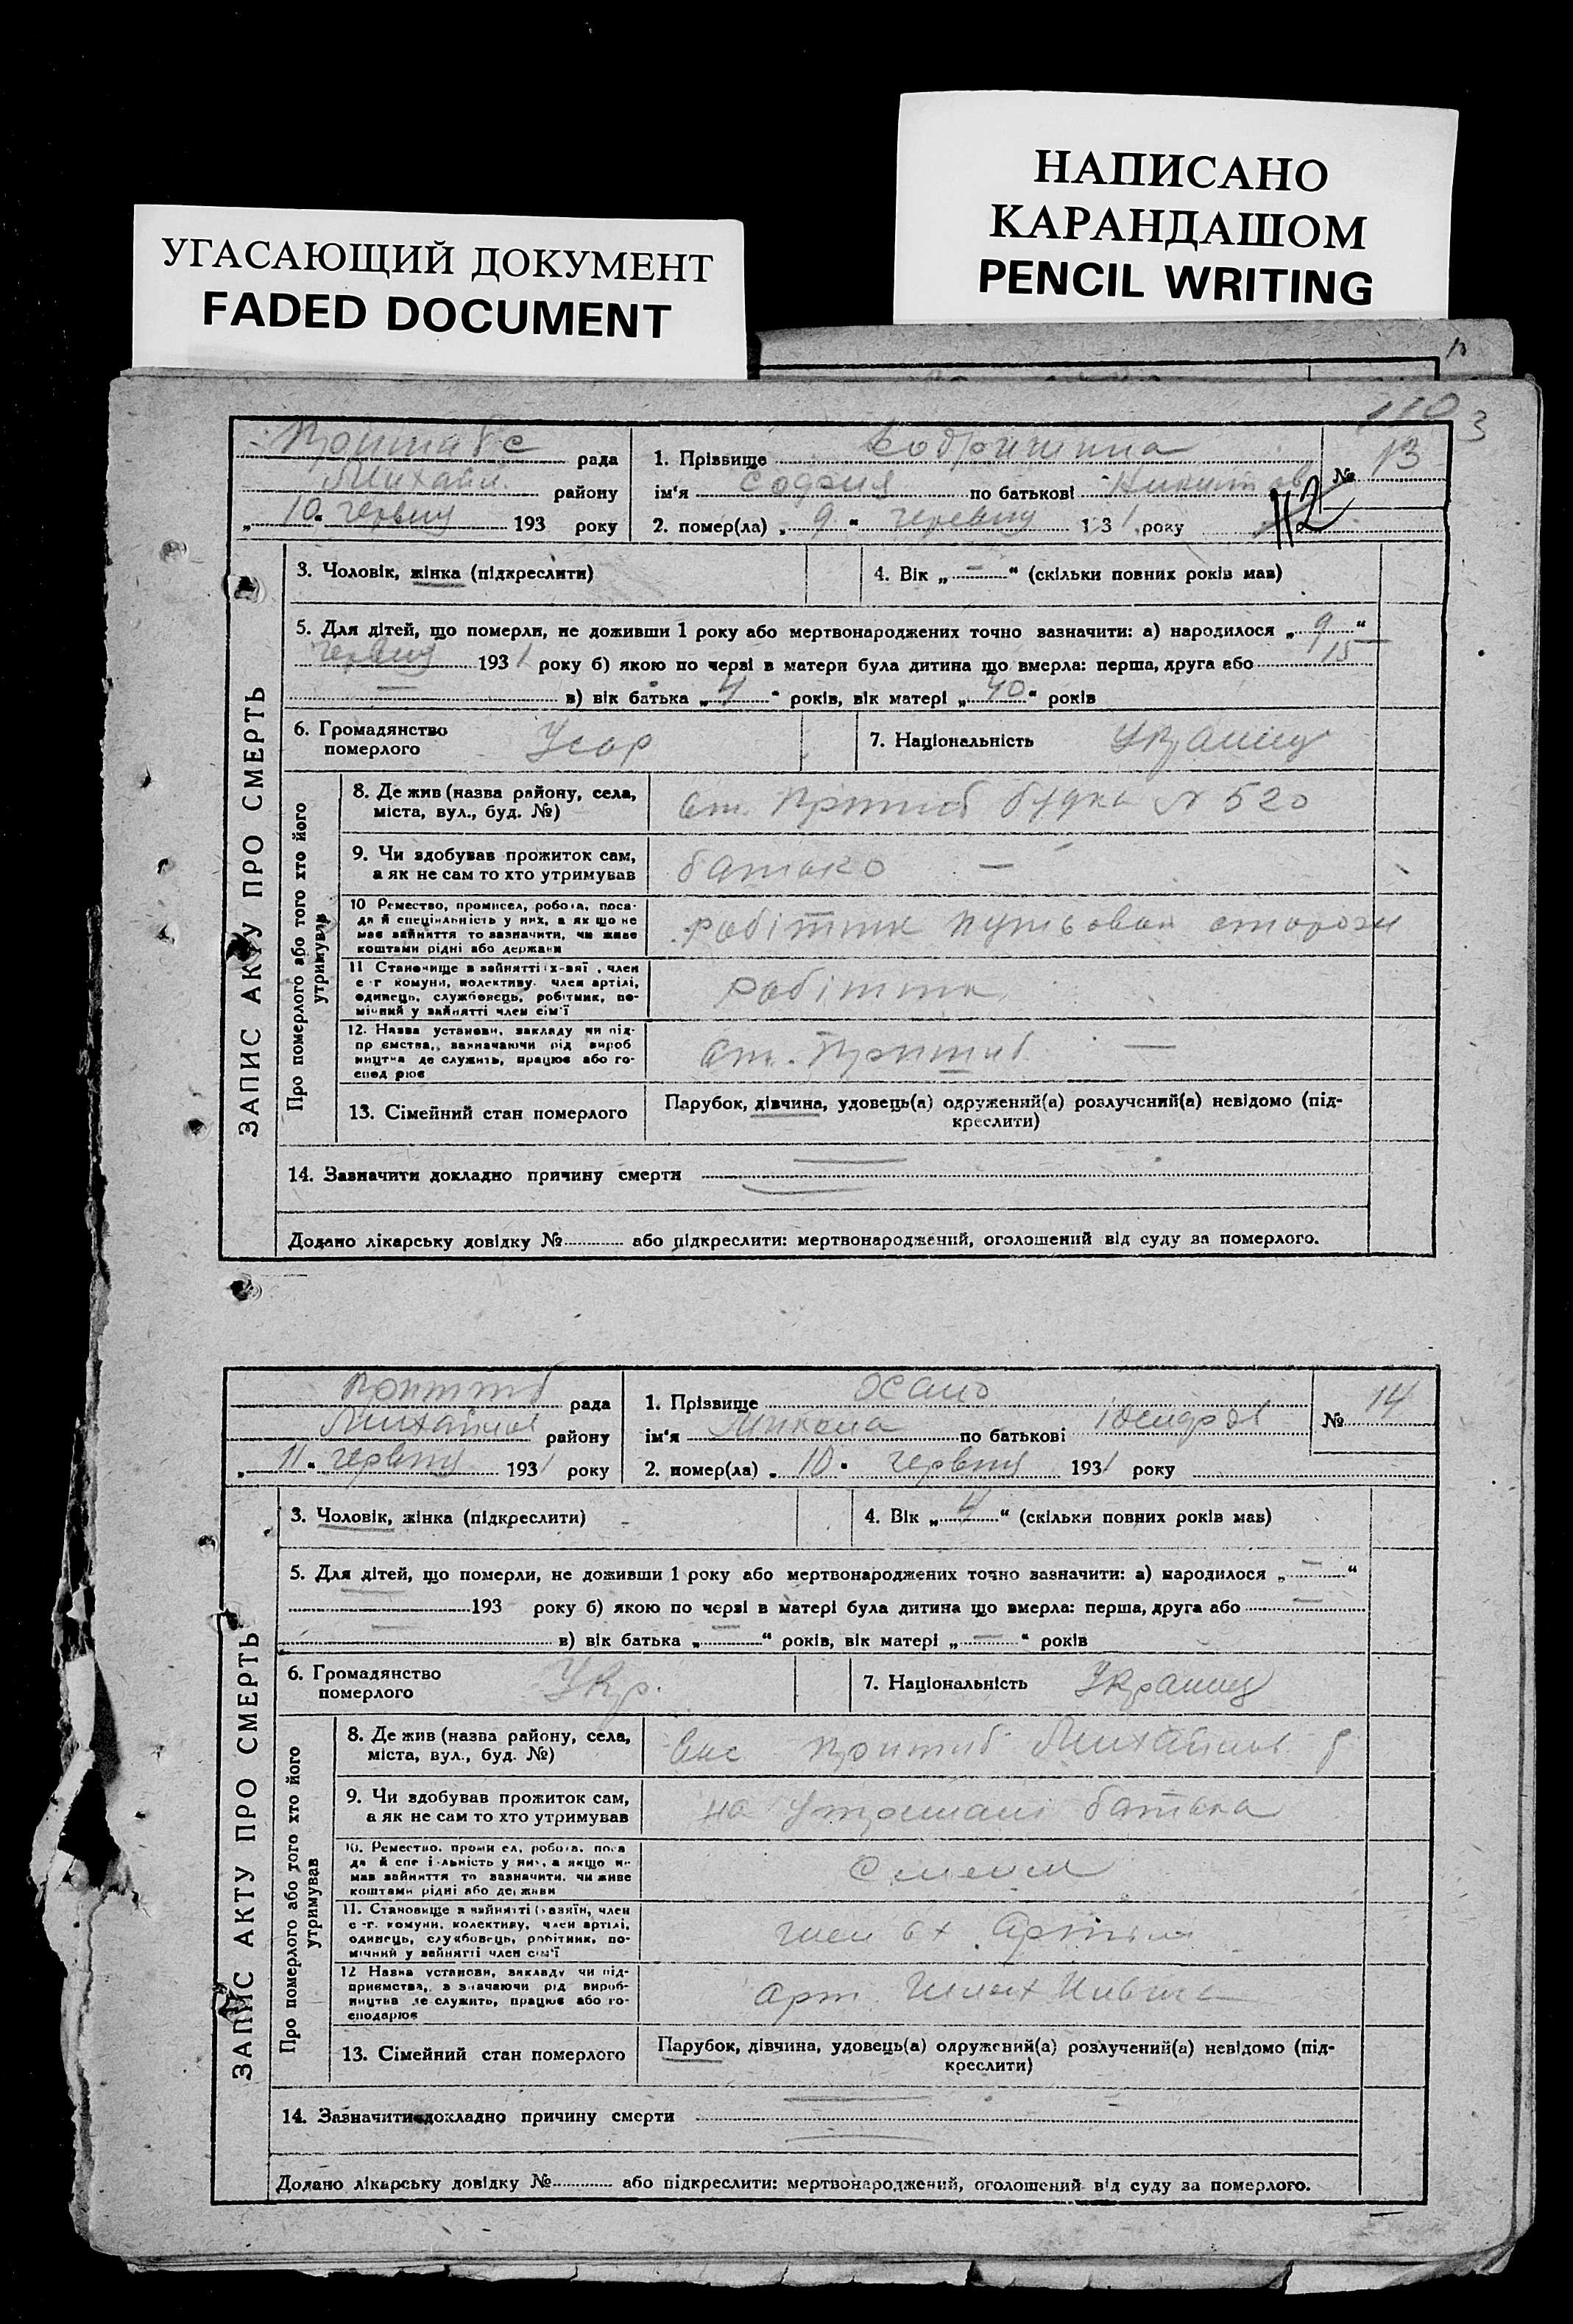 НАПИСАНО
КАРАНДАШОМ
PENCIL WRITING
УГАСАЮЩИЙ ДОКУМЕНТ
FADED DOCUMENT
3
рада
району
„ 10 “ червня 193 року
1. Прізвище
ім‘я София по батькові
№ 13
2. помер(ла) „ 9 “ червня 1 31 року
112
ЗАПИС АКТУ ПРО СМЕРТЬ
3. Чоловік, жінка (підкреслити)
4. Вік „ — “ (скільки повних років мав)
5. Для дітей, що померли, не доживши 1 року або мертвонароджених точно зазначити: а) народилося „ 9 “
червня 1931 року б) якою по черзі в матери була дитина що вмерла: перша, друга або 15
— в) вік батька „ “ років, вік матері „ 40 “ років
6. Громадянство
померлого
Усср
7. Національність
Про померлого або того хто його
утримував
8. Де жив (назва району, села,
міста, вул., буд. №)
ст. будка № 520
9. Чи здобував прожиток сам,
а як не сам то хто утримував
батько —
10 Ремество, промисел, робота, поса-
да й спеціальність у них, а як що не
має зайняття то зазначити, чи живе
коштами рідні або держави
робітник
11 Становище в зайнятті х-вяї , член
с-г комуни, колективу. член артілі,
одинець, службовець, робітник, по-
мічний у зайнятті член сім'ї
робітник
12. Назва установи, закладу чи під-
пр ємства,, зазначаючи рід вироб
ництва де служить, працює або го-
спод рює
ст. —
13. Сімейний стан померлого
Парубок, дівчина, удовець(а) одружений(а) розлучений(а) невідомо (під-
креслити)
14. Зазначити докладно причину смерти
Додано лікарську довідку № або підкреслити: мертвонароджений, оголошений від суду за померлого.
рада
району
„ 11 “ червня 1931 року
1. Прізвище
ім‘я Микола по батькові
№ 14
2. помер(ла) „ 10 “ червня 1931 року
ЗАПИС АКТУ ПРО СМЕРТЬ
3. Чоловік, жінка (підкреслити)
4. Вік „ 4 “ (скільки повних років мав)
5. Для дітей, що померли, не доживши 1 року або мертвонароджених точно зазначити: а) народилося „ — “
193 року б) якою по черзі в матері була дитина що вмерла: перша, друга або —
— в) вік батька „ — “ років, вік матері „ — “ років
6. Громадянство
померлого
Укр.
7. Національність
Про померлого або того хто його
утримував
8. Де жив (назва району, села,
міста, вул., буд. №)
9. Чи здобував прожиток сам,
а як не сам то хто утримував
на утримані батька
10. Ремество, проми ел, робота, поса
да й спе і льність у них, а якщо н-
має зайняття то зазначити, чи живе
коштами рідні або держави
11. Становище в зайнятті (хазяїн, член
с-г. комуни, колективу, член артілі,
одинець, службовець, робітник, по-
мічний у зайнятті член сім'ї
член
12 Назва установи, закладу чи під-
приємства,, з значаючи рід вироб-
ництва де служить, працює або го-
сподарює
арт.
13. Сімейний стан померлого
Парубок, дівчина, удовець(а) одружений(а) розлучений(а) невідомо (під-
креслити)
14. Зазначити докладно причину смерти
Додано лікарську довідку № або підкреслити: мертвонароджений, оголошений від суду за померлого.